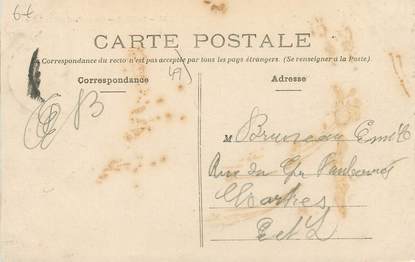 6f
CARTE POSTALE
Correspondance du recto n'est pas acceptée par tous les pays étrangers. (Se renseigner à la Poste)
47)
Correspondance
Adresse
B
M Bruneau Emile
Rue du Gr Faubourg
Chartres
E et L